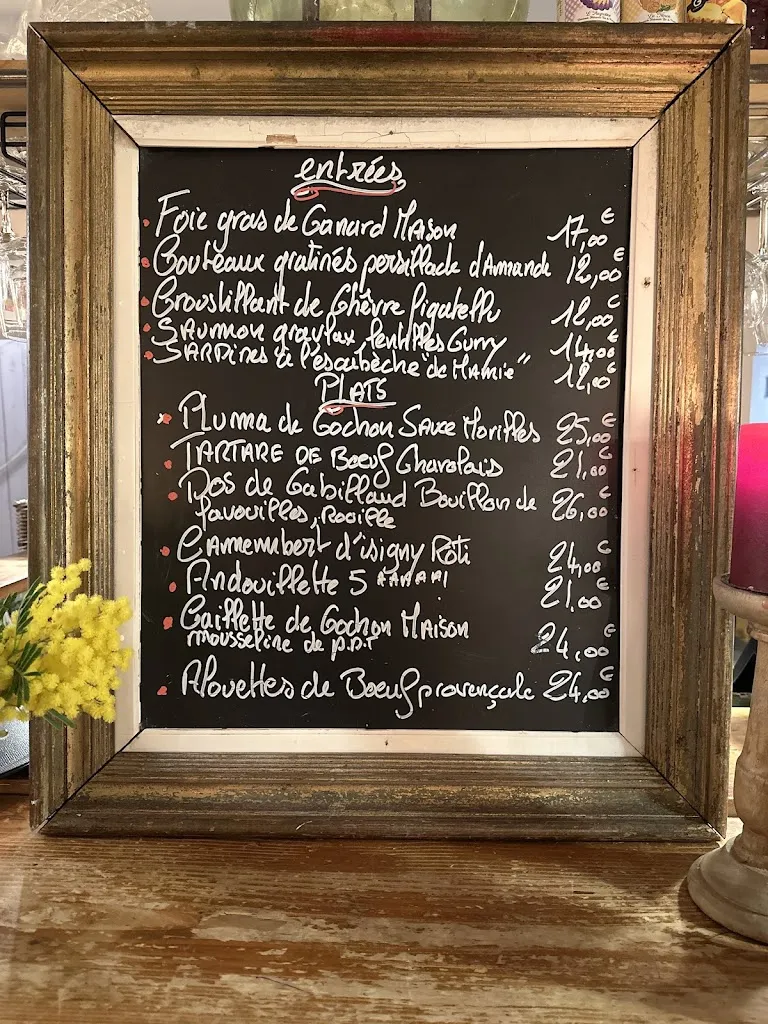 entrées
Foie gras de Canard Maison 17,00€
Couteaux gratinés persillade d'Amande 12,00€
Croustillant de Chèvre figatellu 12,00€
Saumon gravlax, lentilles Curry 14,00€
SARDINES à l'escabèche "de Mamie" 12,00€
PLATS
Pluma de Cochon Sauce Morilles 25,00€
TARTARE DE Boeuf Charolais 21,00€
Dos de Cabillaud Bouillon de 26,00€
favouilles, rouille
Camembert d'isigny Rôti 24,00€
Andouillette 5 AAAAA! 21,00€
Caillette de Cochon Maison 24,00€
mousseline de p.d.t
Alouettes de Boeuf provençale 24,00€